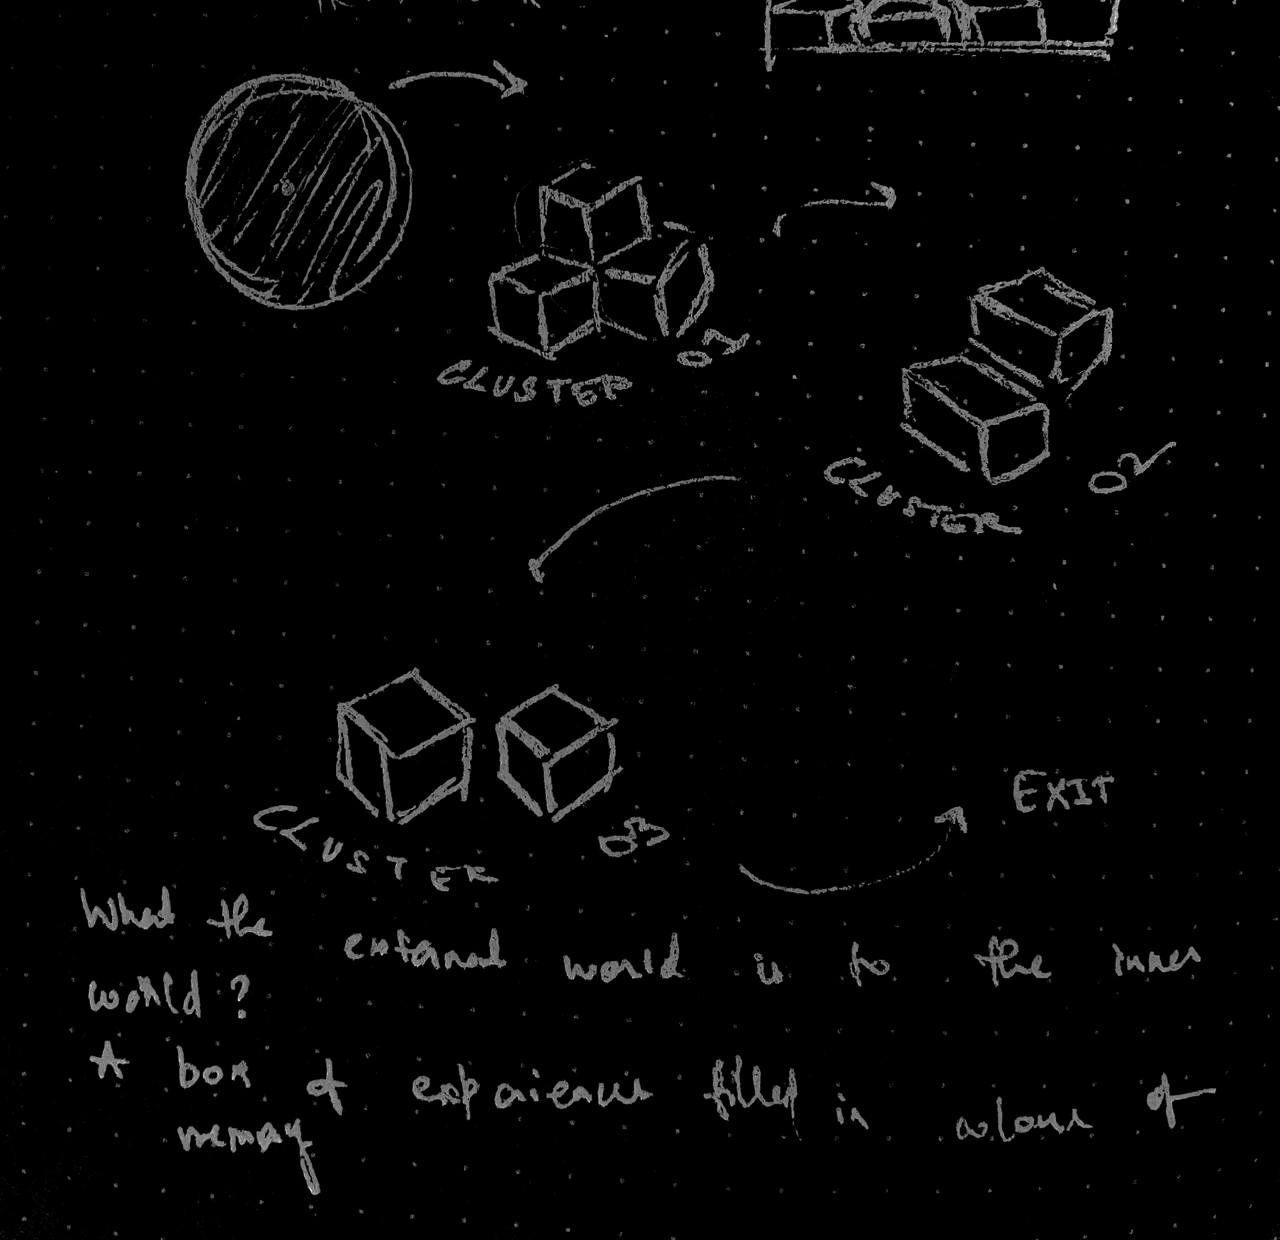 CLUSTER 01
CLUSTER 02
CLUSTER 03
EXIT
What the external world is to the inner
world?
A box of experiences filled in colours of
memory